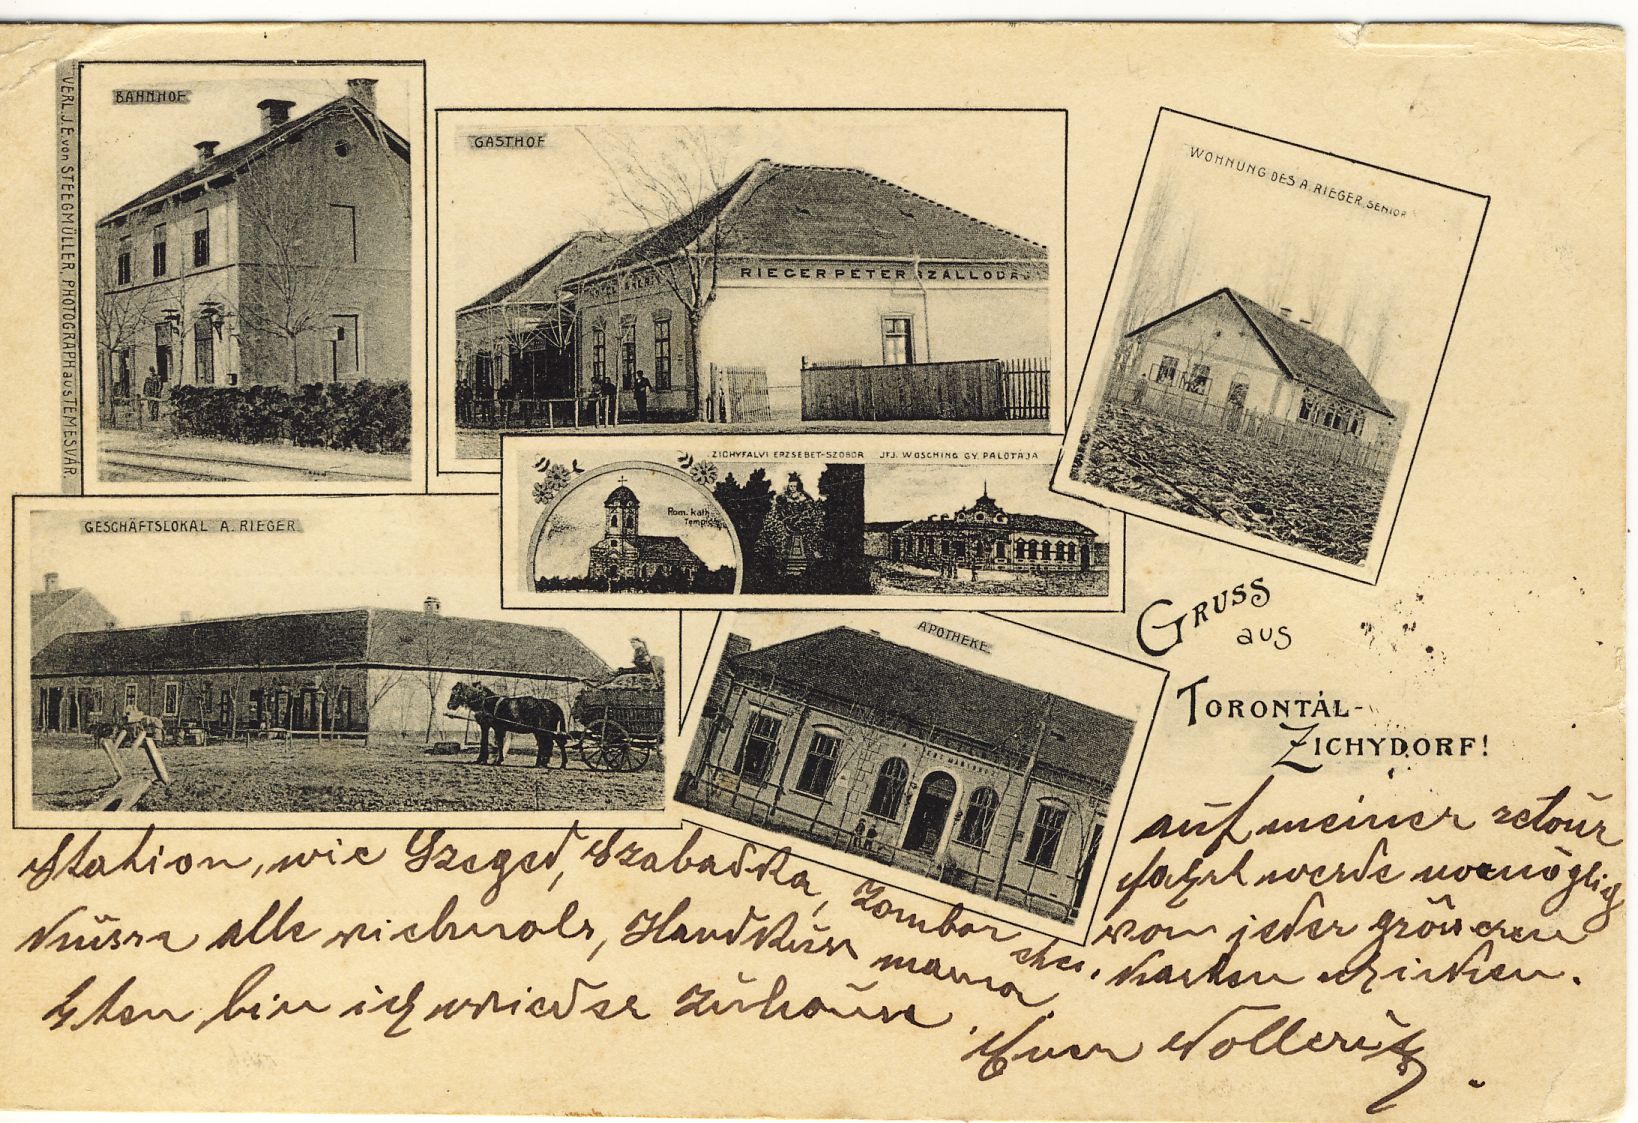 VERL. J. E. von STEEGMÜLLER PHOTOGRAPH aus TEMESVÁR
BAHNHOF
GASTHOF
RIEGER PETER SZÁLLODÁJA
WOHNUNG DES A. RIEGER, SENIOR
ZICHYFALVI ERZSEBET-SZOBOR
IFJ. WOSCHING GY. PALOTÁJA
Rom. kath.
Templom
GESCHÄFTSLOKAL A. RIEGER
APOTHEKE
GRUSS
aus
TORONTÁL-
ZICHYDORF!
auf meiner retour
fahrt werde womöglig
von jeder grösseren
Station, wie Szeged, Szabadka, Zombor etc. Karten schicken.
Küsse alle vielmals, Handkuss mama
ten bin ich wieder zuhause.
Euer